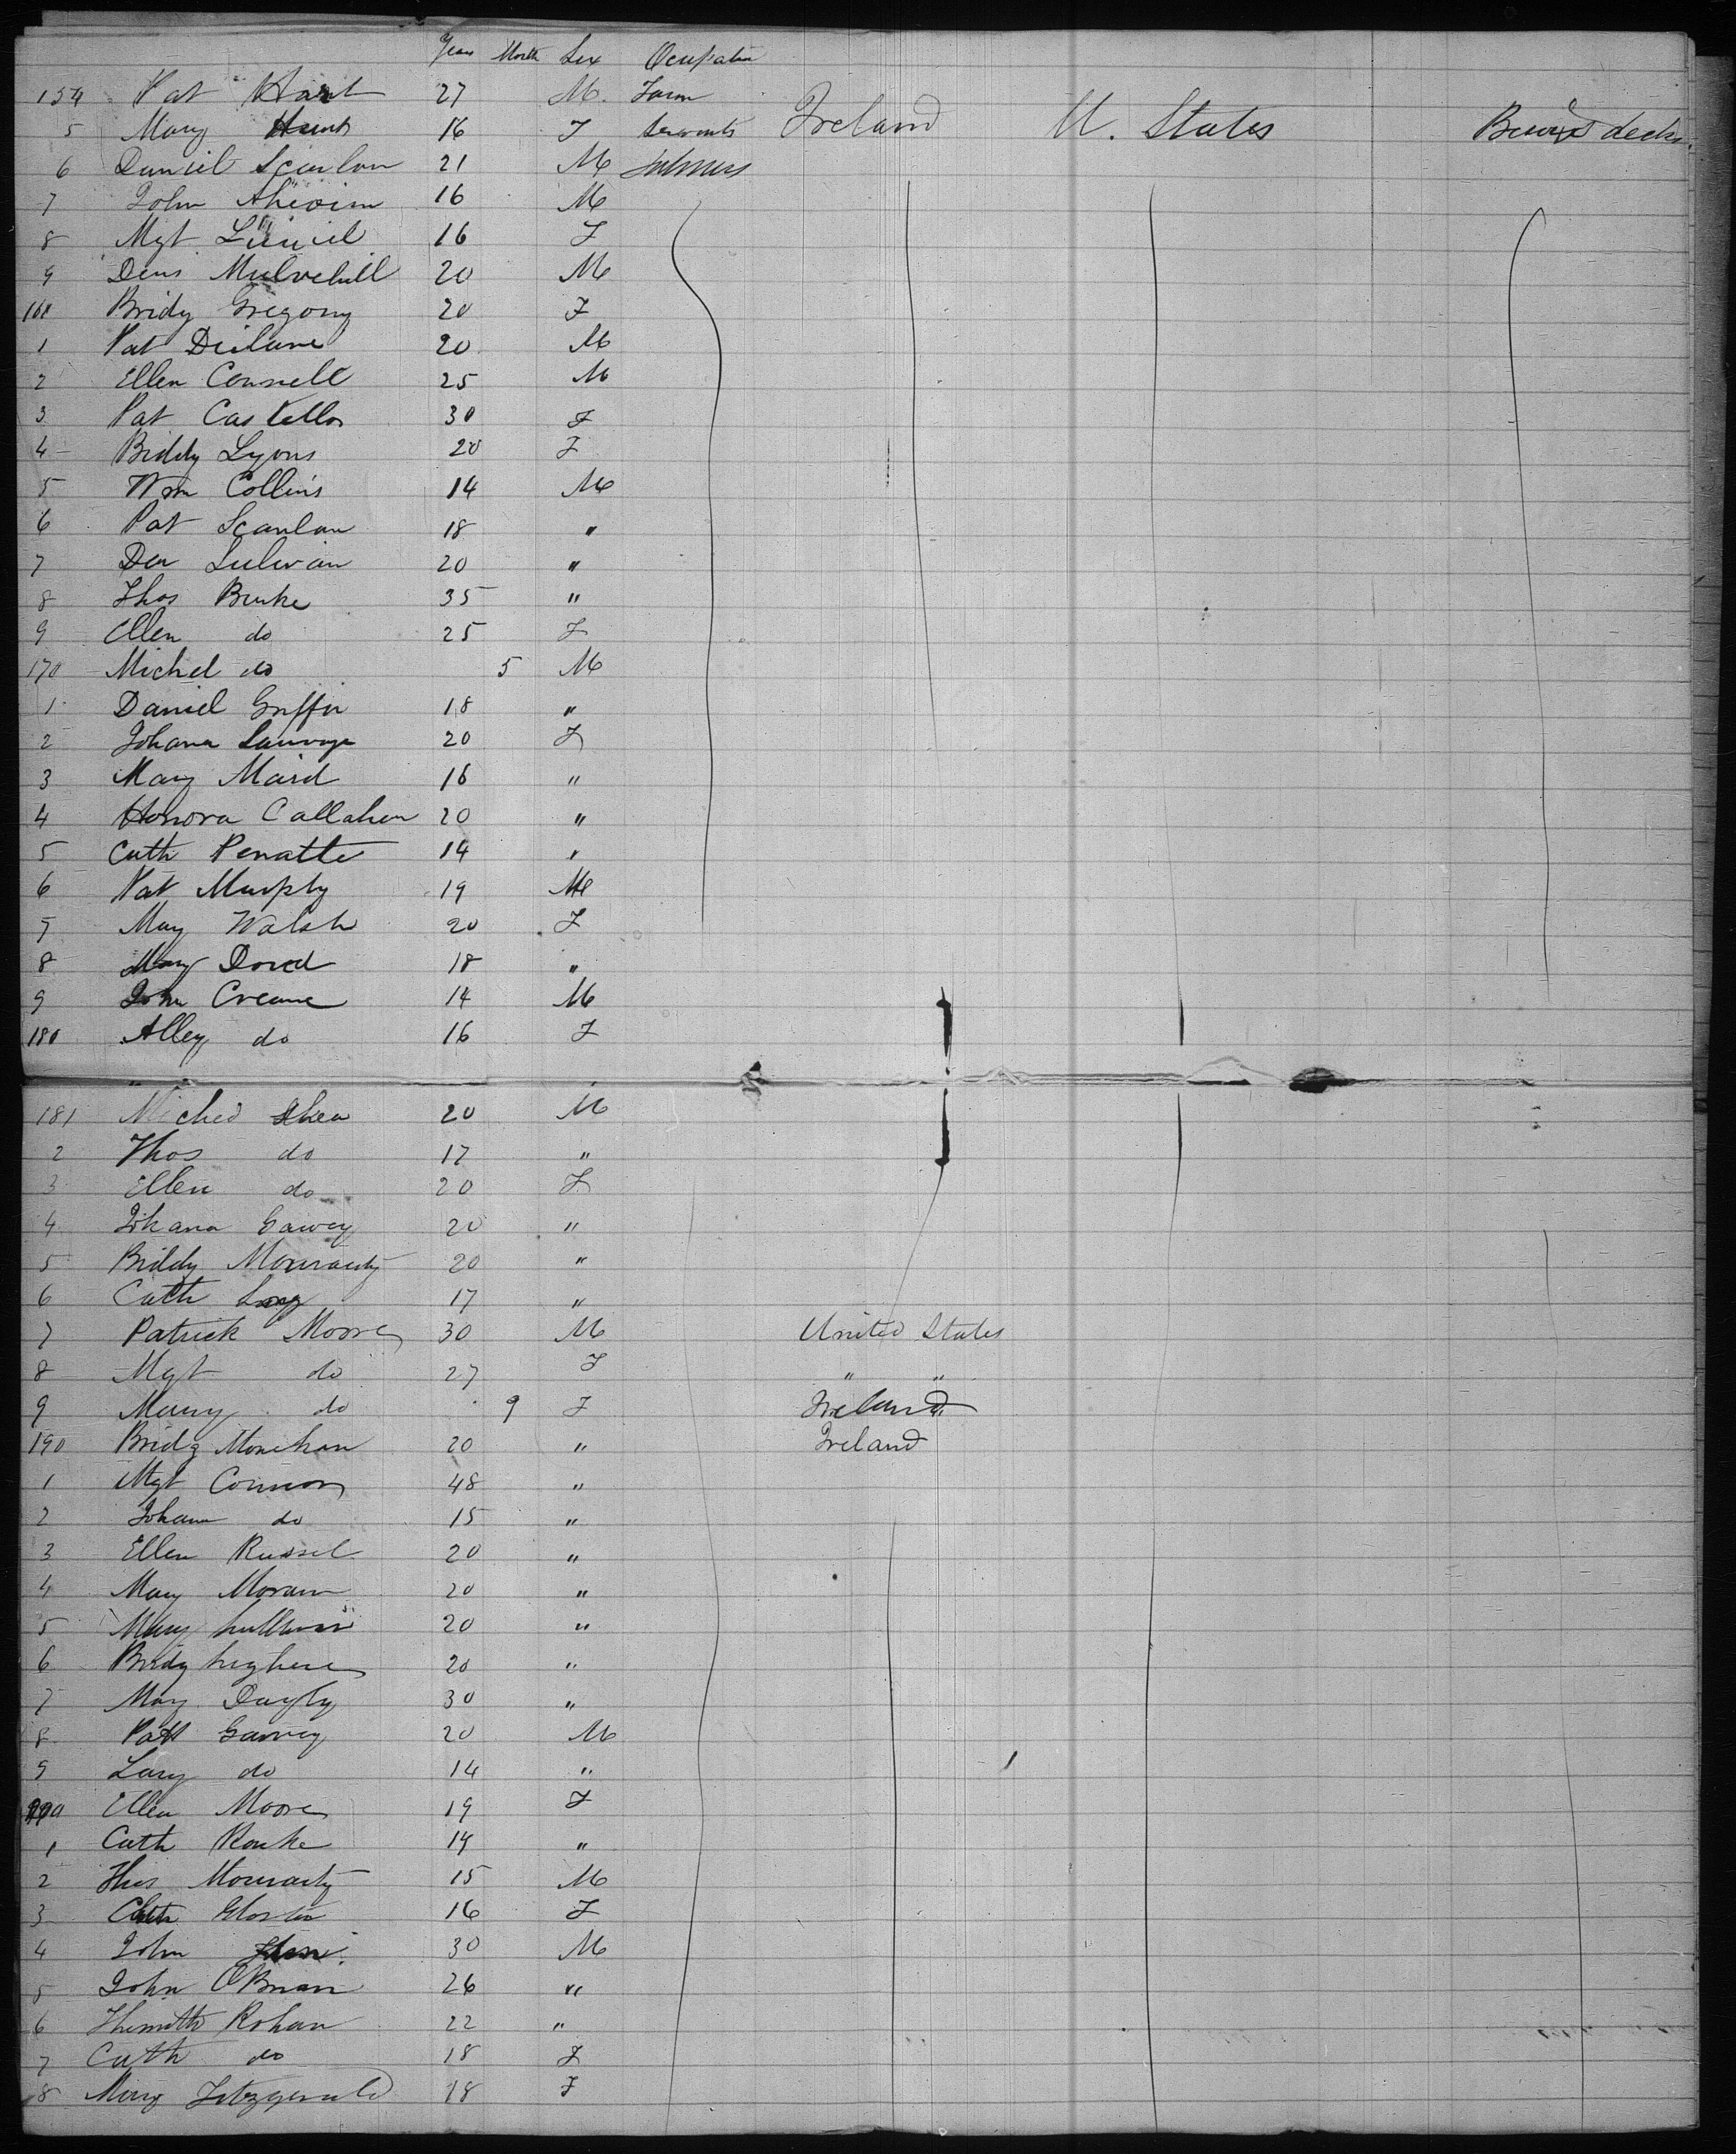 Years Month Sex Ocupation
154 Pat Hart 27 M. Farm
5 Mary 16 F Servants Ireland U. States Betwixt decks.
6 Daniel Scanlon 21 M
7 John 16 M
8 Mgt 16 F
9 Dens Mulvehill 20 M
160 Bridy Gregory 20 F
1 Pat Dilane 20 M
2 Ellen Connell 25 M
3 Pat Castello 30 F
4 Biddy Lyons 20 F
5 Wm Collins 14 M
6 Pat Scanlan 18 "
7 Den Sulivan 20 "
8 Thos Burke 35 "
9 Ellen do 25 F
170 Michel do 5 M
1 Daniel Griffin 18 "
2 Johana 20 F
3 Mary Maird 16 "
4 Honora Callahen 20 "
5 Cath Penatte 14 "
6 Pat Murphy 19 M
7 May Walsh 20 F
8 Mary Dowd 18 "
9 John Creane 14 M
180 Alley do 16 F
181 Michel Shea 20 M
2 Thos do 17 "
3 Ellen do 20 F
4 Johana Garvey 20 "
5 Biddy Mouriarty 20 "
6 Cath Long 17 "
7 Patrick Moore 30 M United States
8 Mgt do 27 F " "
9 Maury do 9 F Ireland
190 Bridg Monehan 20 " Ireland
1 Mgt Connors 48 "
2 Johana do 15 "
3 Ellen Russel 20 "
4 May Moran 20 "
5 Mary Sullivan 20 "
6 Bridg 20 "
7 May Dayly 30 "
8 Patt Garvey 20 M
9 Lary do 14 "
200 Ellen Moore 19 F
1 Cath Rourke 19 "
2 Thos Mouriarty 15 M
3 Cath Gloster 16 F
4 John 30 M
5 John OBrian 26 "
6 Rohan 22 "
7 Cath do 18 F
8 Mary Fitzgerald 18 F